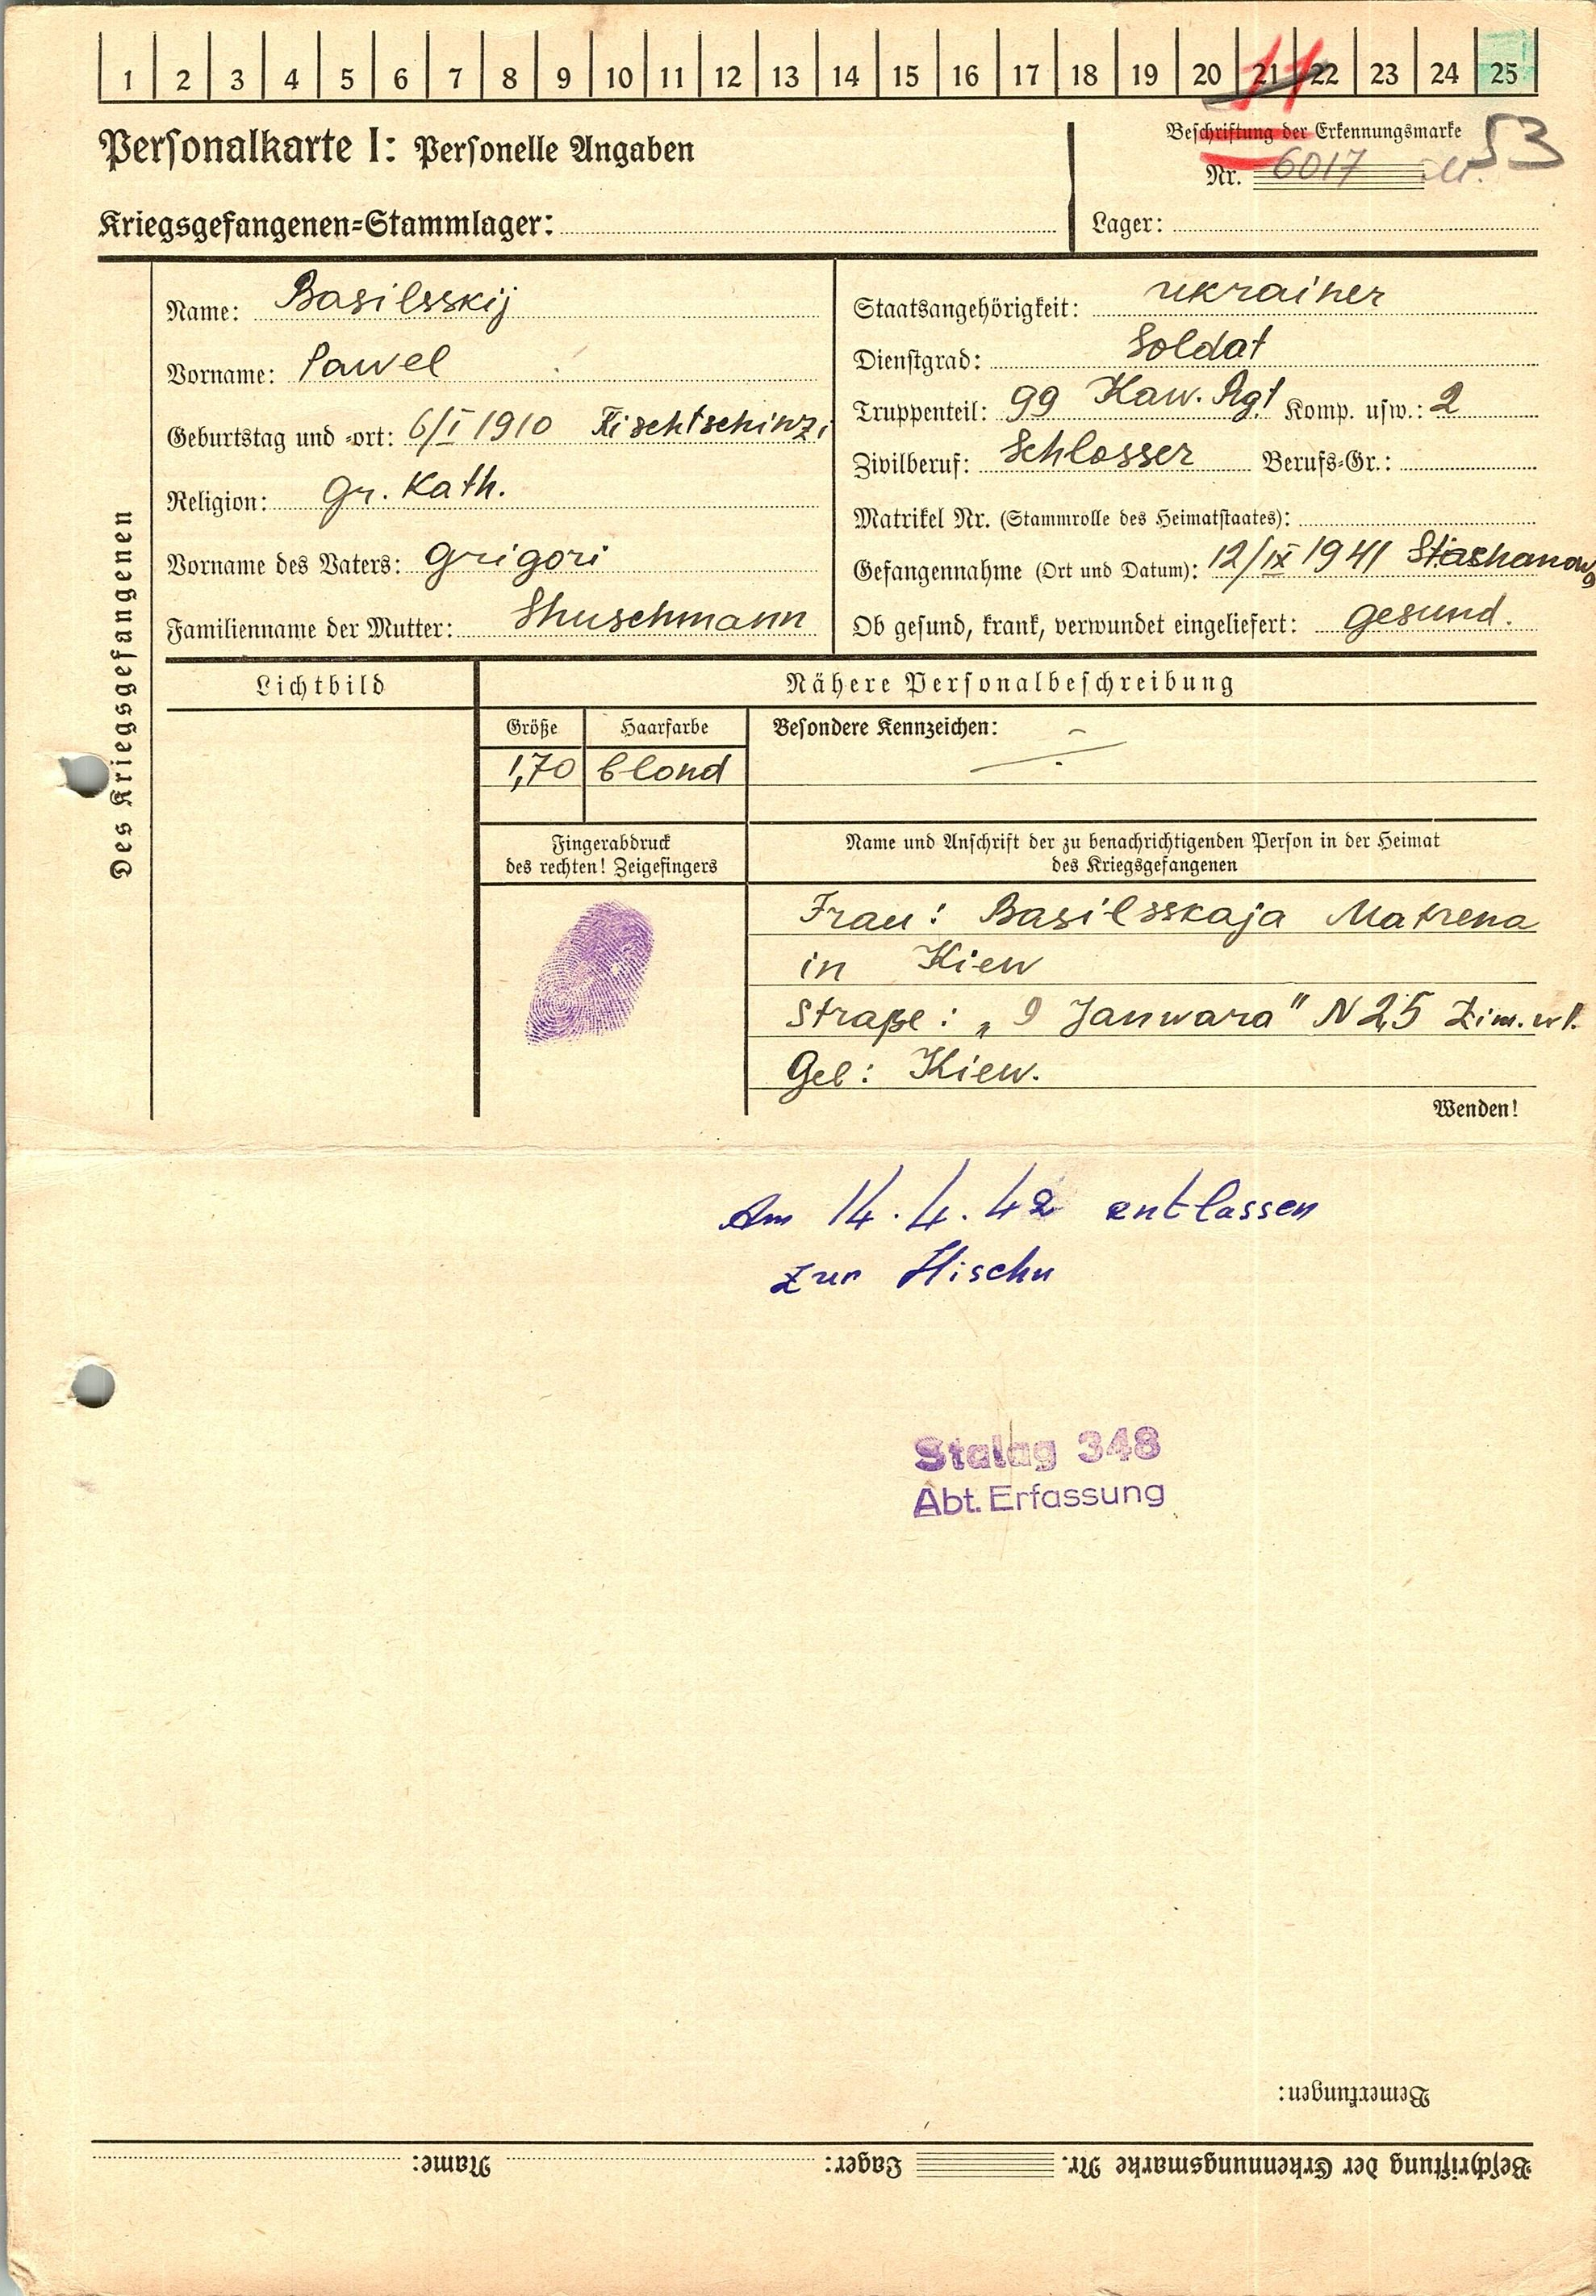 1 2 3 4 5 6 7 8 9 10 11 12 13 14 15 16 17 18 19 20 21 22 23 24 25
11
Personalkarte I: Personelle Angaben
Beschriftung der Erkennungsmarke
53
Nr. 6017
Kriegsgefangenen-Stammlager:
Lager:
Des Kriegsgefangenen
Name: Basilsskij
Vorname: Pawel
Geburtstag und -ort: 6/I 1910
Religion: Gr. Kath.
Vorname des Vaters: Grigori
Familienname der Mutter: Shuschmann
Staatsangehörigkeit: Ukrainer
Dienstgrad: Soldat
Truppenteil: 99 Kaw. Rgt Komp. usw.: 2
Zivilberuf: Schlosser Berufs-Gr.:
Matrikel Nr. (Stammrolle des Heimatstaates):
Gefangennahme (Ort und Datum): 12/IX 1941
Ob gesund, krank, verwundet eingeliefert: gesund.
Lichtbild
Nähere Personalbeschreibung
Größe Haarfarbe Besondere Kennzeichen:
1,70 blond
Fingerabdruck
des rechten! Zeigefingers
Name und Anschrift der zu benachrichtigenden Person in der Heimat
des Kriegsgefangenen
Frau: Basilsskaja Matrena
in Kiew
Straße: „9 Janwara" N 25
Geb: Kiew.
Wenden!
Am 14.4.42 entlassen
zur
Stalag 348
Abt. Erfassung
Bemerkungen:
Beschriftung der Erkennungsmarke Nr. Lager: Name: